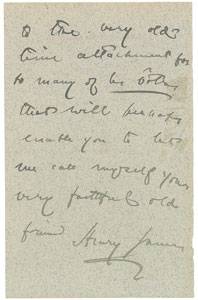 to the very old
time attachment for
so many of his
that will perhaps
enable you to let
me call myself your
very faithful old
friend Henry James